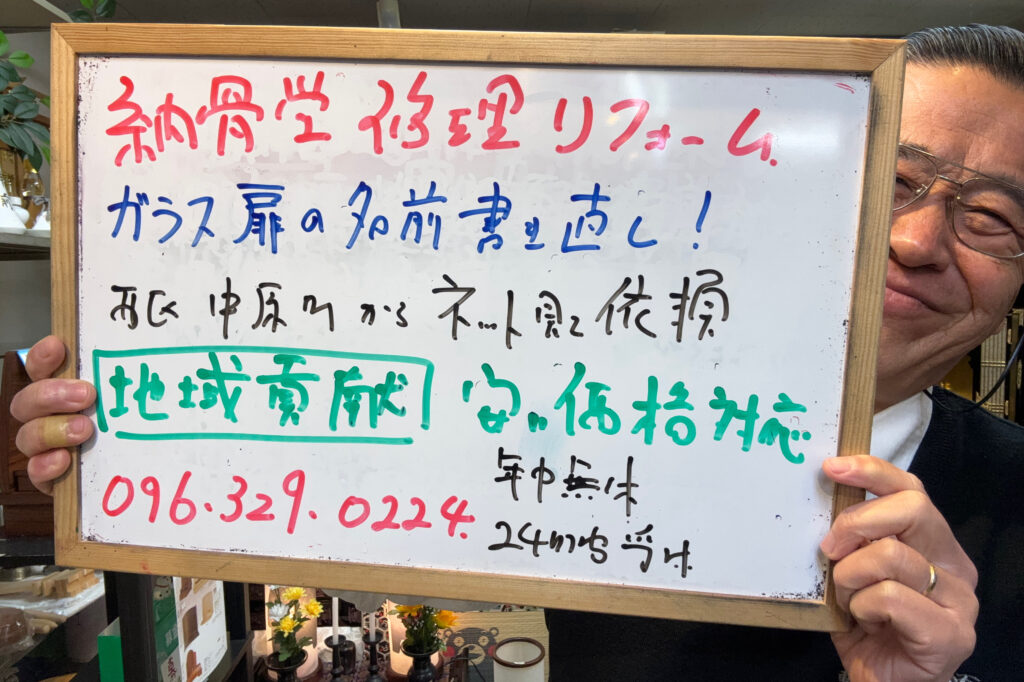 納骨堂 修理 リフォーム.
ガラス扉の名前書き直し!
西区 中原町から ネット見て 依頼
地域貢献 安い価格対応
096.329.0224.
年中無休
24時間受付